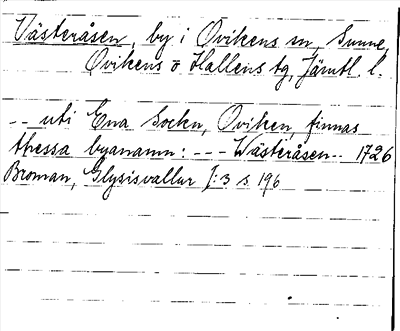 Västeråsen, by i Ovikens sn, Sunne,
Ovikens o Hallens tg, Jämtl. l.
-- uti Ena Sockn, Oviken, finnas
thessa byanamn: --- Wästeråsen-- 1726
Broman, Glysisvallur I:3 s. 196